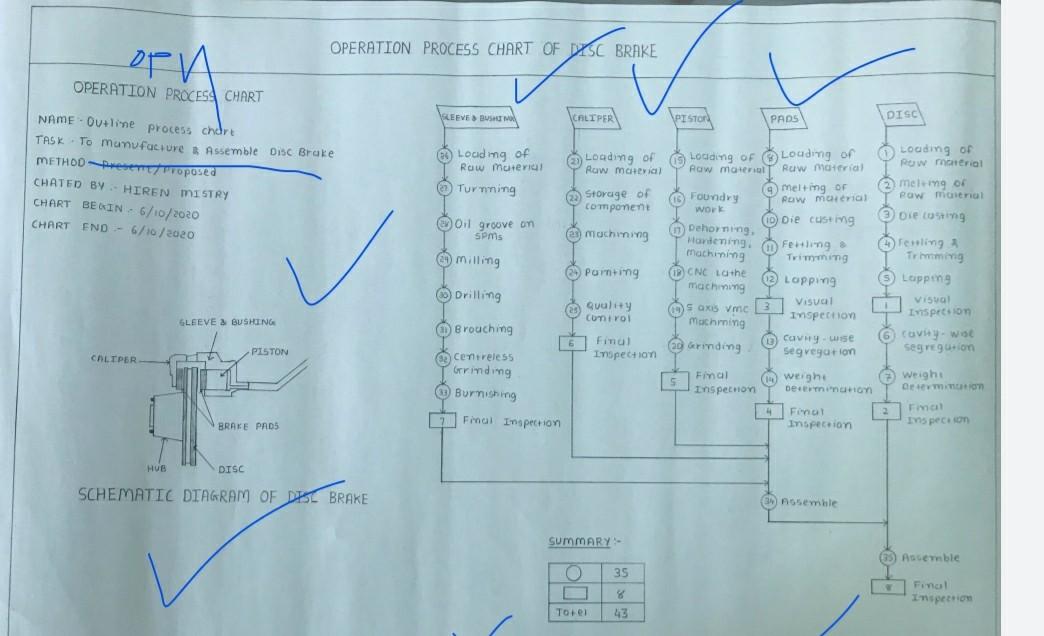 OPERATION PROCESS CHART OF DISC BRAKE
OPERATION PROCESS CHART
NAME - Outline process chart
TASK - To manufacture & Assemble Disc Brake
METHOD - Present/Proposed
CHATED BY :- HIREN MISTRY
CHART BEGIN :- 6/10/2020
CHART END :- 6/10/2020
SLEEVE & BUSHING
CALIPER
PISTON
BRAKE PADS
HUB
DISC
SCHEMATIC DIAGRAM OF DISC BRAKE
SLEEVE & BUSHING
26 Loading of
Raw material
27 Turnning
28 Oil groove on
SPMs
29 Milling
30 Drilling
31 Broaching
32 Centreless
Grinding
33 Burnishing
7 Final Inspection
CALIPER
21 Loading of
Raw material
22 Storage of
component
23 Machining
24 Painting
25 Quality
control
6 Final
Inspection
PISTON
15 Loading of
Raw material
16 Foundry
work
17 Dehorning,
Hardening,
machining
18 CNC Lathe
machining
19 5 axis vmc
Machining
20 Grinding
5 Final
Inspection
PADS
8 Loading of
Raw material
9 melting of
Raw material
10 Die casting
11 Fettling &
Trimming
12 Lapping
3 Visual
Inspection
13 Cavity-wise
segregation
14 weight
Determination
4 Final
Inspection
DISC
1 Loading of
Raw material
2 Melting of
Raw material
3 Die casting
4 Fettling &
Trimming
5 Lapping
1 Visual
Inspection
6 cavity-wise
segregation
7 Weight
Determination
2 Final
Inspection
34 Assemble
35 Assemble
8 Final
Inspection
SUMMARY :-
35
8
Total 43